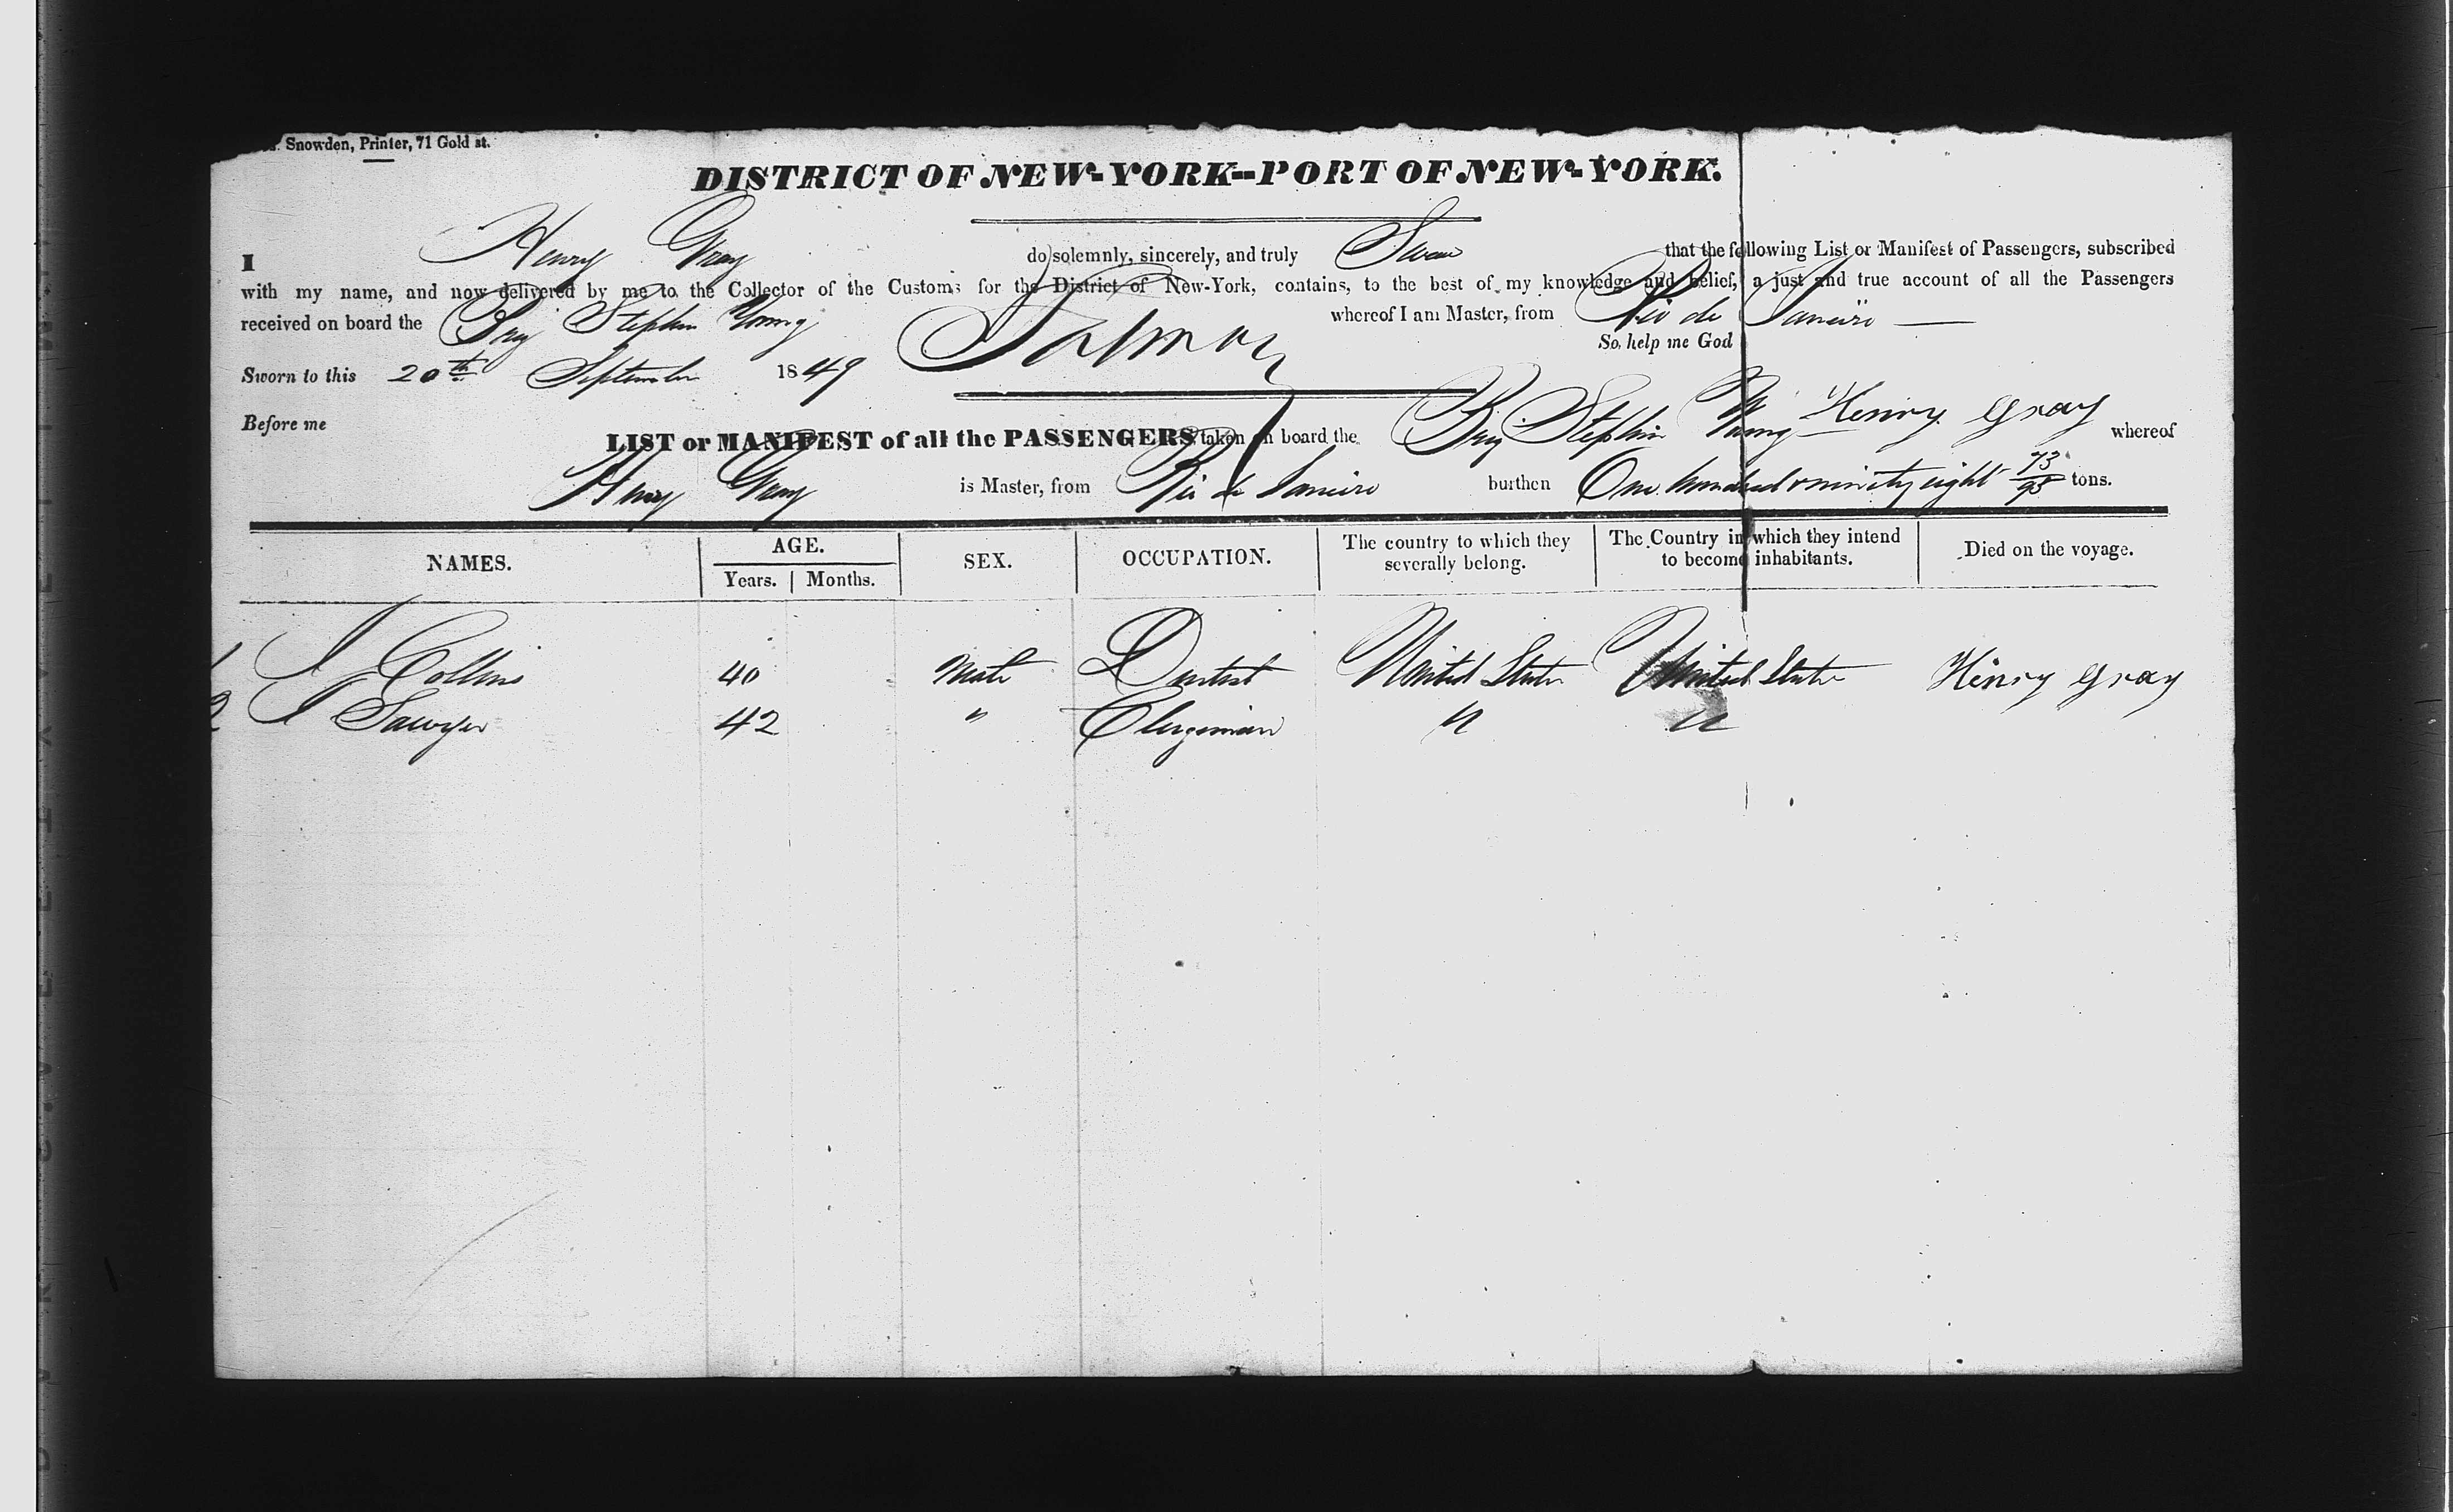 Snowden, Printer, 71 Gold st.
DISTRICT OF NEW-YORK--PORT OF NEW-YORK.
I Henry Gray do solemnly, sincerely, and truly Swear that the following List or Manifest of Passengers, subscribed
with my name, and now delivered by me to the Collector of the Customs for the District of New-York, contains, to the best of my knowledge and belief, a just and true account of all the Passengers
received on board the Brig Stephen Young whereof I am Master, from Rio de Janeiro
So help me God
Sworn to this 20th September 1849
Before me Henry Gray
LIST or MANIFEST of all the PASSENGERS taken on board the Brig Stephen Young whereof
Henry Gray is Master, from Rio de Janeiro burthen One hundred & ninety eight 73/95 tons.
NAMES. AGE. SEX. OCCUPATION. The country to which they severally belong. The Country in which they intend to become inhabitants. Died on the voyage.
Years. Months.
1 J Collins 40 Male Dentist United States United States Henry Gray
2 J Sawyer 42 " Clergiman " "